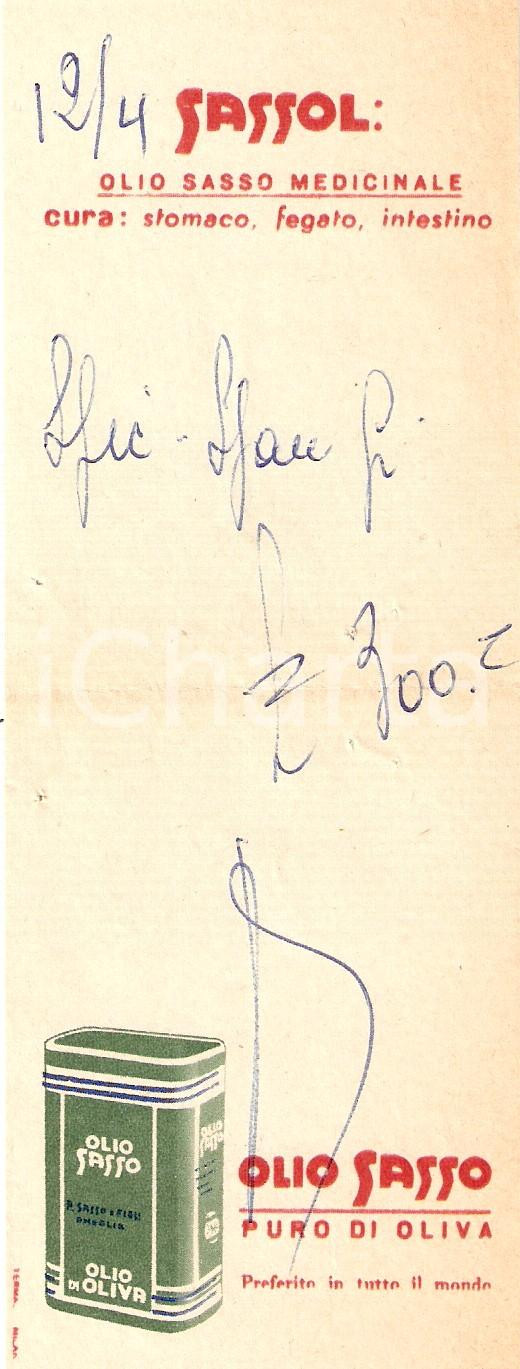 12/4 SASSOL:
OLIO SASSO MEDICINALE
cura: stomaco, fegato, intestino
Spic - Span
£ 300.=
iCharta
OLIO
SASSO
P. SASSO e FIGLI
ONEGLIA
OLIO
DI OLIVA
OLIO
SASSO
OLIO SASSO
PURO DI OLIVA
Preferito in tutto il mondo